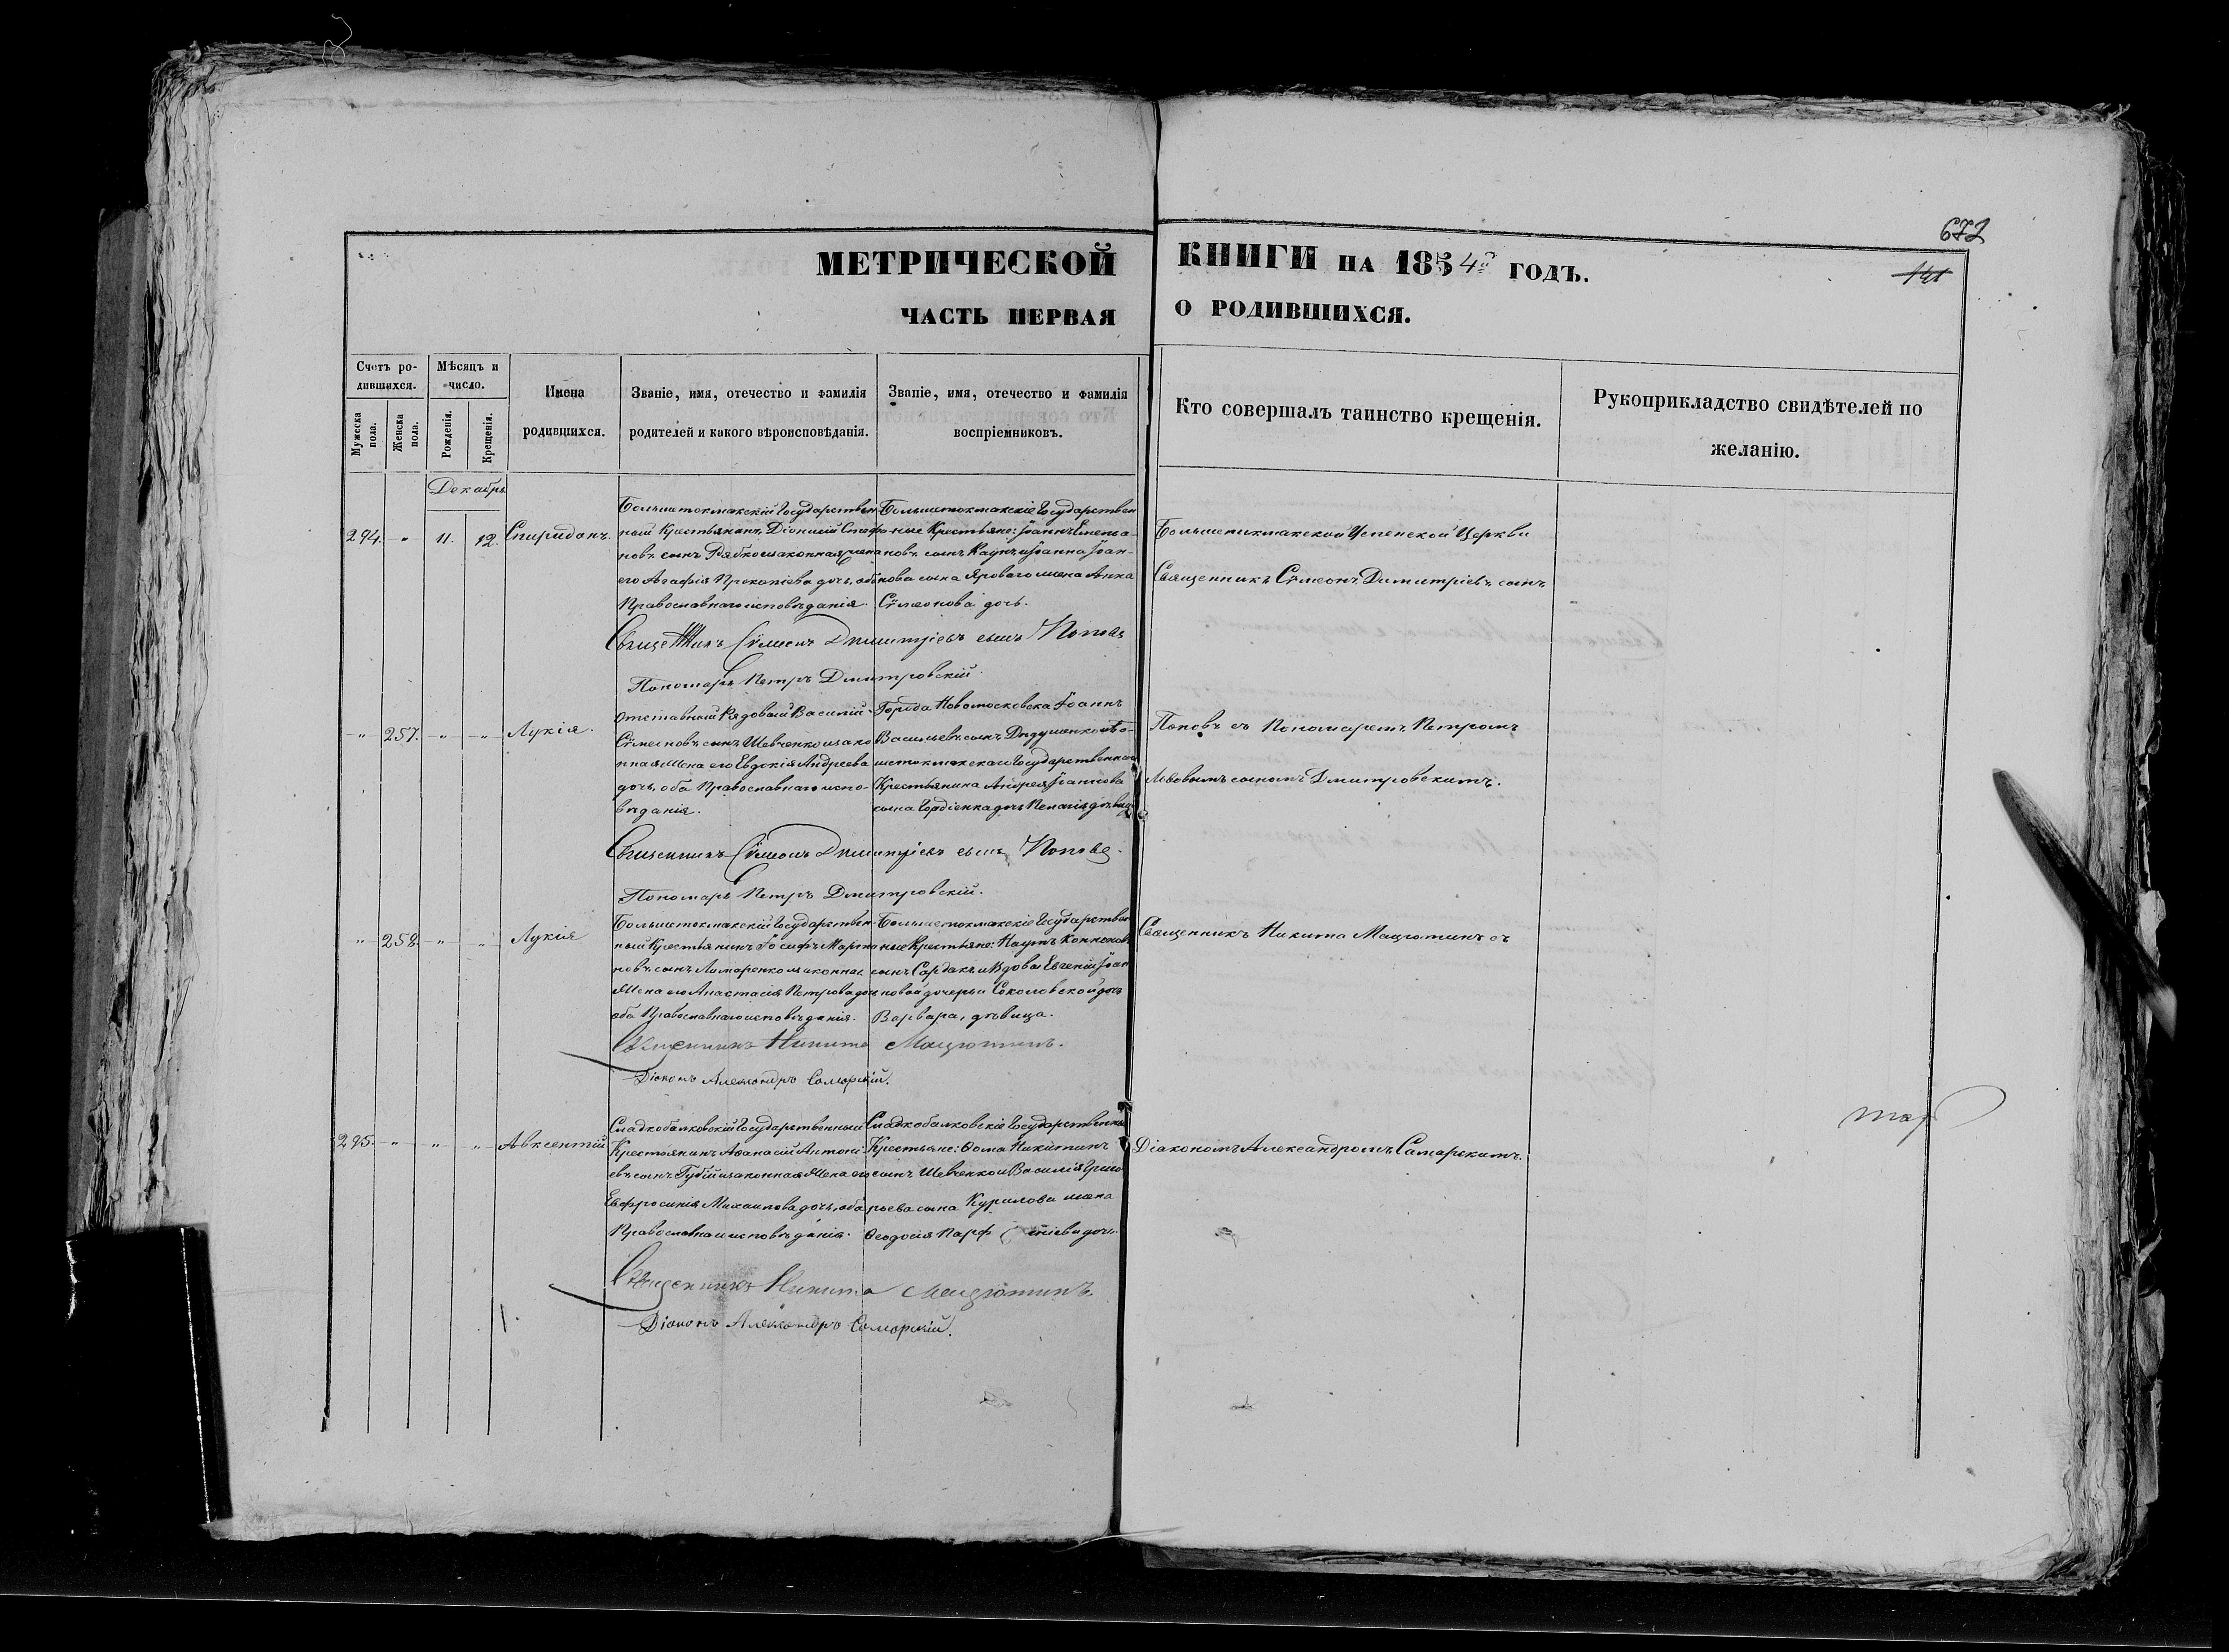 672
141
МЕТРИЧЕСКОЙ КНИГИ НА 1854го ГОДЪ.
ЧАСТЬ ПЕРВАЯ О РОДИВШИХСЯ.
Счетъ родившихся.
Мужеска пола.
Женска пола.
Мѣсяцъ и число.
Рожденія.
Крещенія.
Имена родившихся.
Званіе, имя, отечество и фамилія родителей и какого вѣроисповѣданія.
Званіе, имя, отечество и фамилія воспріемниковъ.
Кто совершалъ таинство крещенія.
Рукоприкладство свидѣтелей по желанію.
Декабрь
294. " 11. 12. Спиридонъ.
Большетокмакскій Государствен-
ный Крестьянинъ Діонисій Стефа-
новъ сынъ Рябко и законная жена
его Агафія Прокопіева дочь, оба
Православнаго исповѣданія.
Большетокмакскіе Государствен
ные Крестьяне: Іоаннъ Емелья-
новъ сынъ Каунъ и Іоанна Іоан-
нова сына Яроваго жена Анна
Сѵмеонова дочь.
Большетокмакской Успенской Церкви
Священникъ Сѵмеонъ Димитріевъ сынъ
Священникъ Сѵмеонъ Димитріевъ сынъ Поповъ
Пономарь Петръ Дмитровскій.
" 257. " " Лукія.
Отставный Рядовый Василій
Сѵмеоновъ сынъ Шевченко и зако
нная жена его Евдокія Андреева
дочь, оба Православнаго испо-
вѣданія.
Города Новомосковска Іоаннъ
Васильевъ сынъ Дидушенко и Бо-
льшетокмакскаго Государственнаго
Крестьянина Андрея Іоаннова
сына Гордіенка дочь Пелагія дѣвица
Поповъ съ Пономаремъ Петромъ
Львовымъ сыномъ Дмитровскимъ.
Священникъ Сѵмеонъ Димитріевъ сынъ Поповъ.
Пономарь Петръ Дмитровскій.
" 258. " " Лукія
Большетокмакскій Государствен-
ный Крестьянинъ Іосифъ Марты
новъ сынъ Лимаренко и законная
жена его Анастасія Петрова дочь
оба Православнаго исповѣданія.
Большетокмакскіе Государствен
ные Крестьяне: Наумъ Кононовъ
сынъ Сардакъ и Вдовы Евгеніи Іоан
новой дочери Соколовской дочь
Варвара, дѣвица.
Священникъ Никита Мацютинъ съ
Священникъ Никита Мацютинъ.
Діаконъ Александръ Самарскій.
295. " " " Авксентій
Сладкобалковскій Государственный
Крестьянинъ Аѳанасій Антоні-
евъ сынъ Губій и законная жена его
Евфросинія Михаилова дочь, оба
Православнаго исповѣданія.
Сладкобалковскіе Государственные
Крестьяне: Ѳома Никитинъ
сынъ Шевченко и Василія Григо
рьева сына Курилова жена
Ѳеодосія Парфентіева дочь.
Діакономъ Александромъ Самарскимъ.
Священникъ Никита Мацютинъ.
Діаконъ Александръ Самарскій.